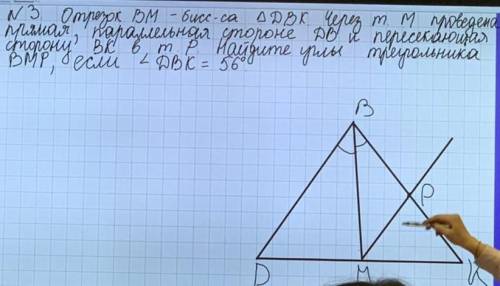 N3 Отрезок BM - бисс-са △DBK. Через т. M проведена
прямая, параллельная стороне DB и пересекающая
сторону BK в т. P. Найдите углы треугольника
BMP, если ∠DBK = 56°
B
P
D
M
K